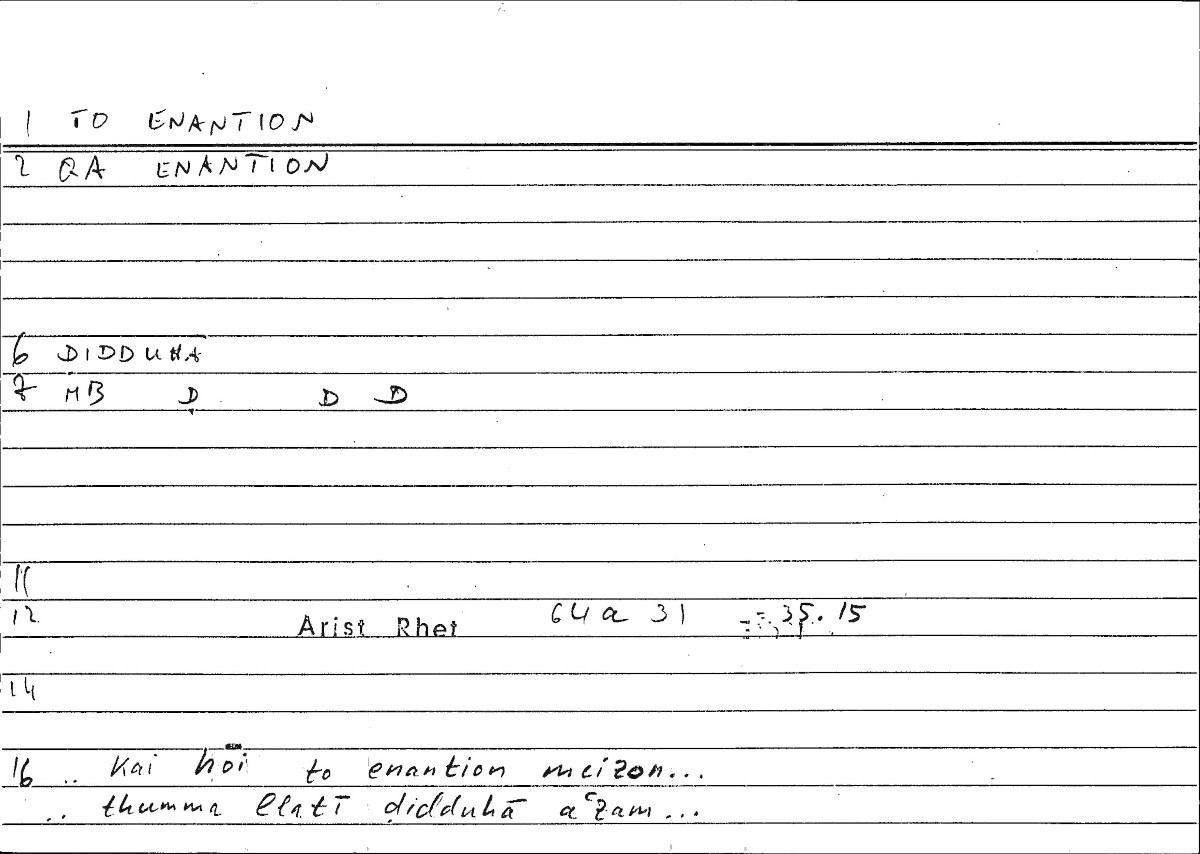 1 TO ENANTION
2 QA ENANTION
6 DIDDUHA
7 MB D D D
11
12 Arist Rhet 64a 31 = 35.15
14
16 .. Kai hōi to enantion meizon...
.. thumma llatī ḍidduhā aʿẓam...